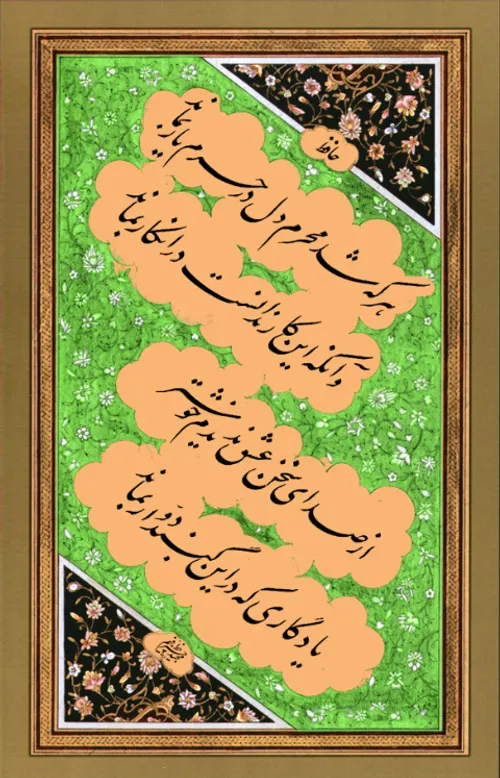 حافظ
هر که شد محرم دل در حرم یار بماند
وآنکه این کار ندانست در انکار بماند
از صدای سخن عشق ندیدم خوشتر
یادگاری که در این گنبد دوار بماند